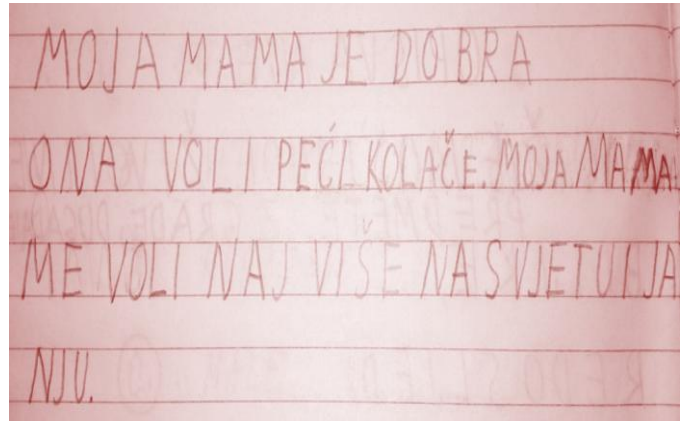 MOJA MAMA JE DOBRA
ONA VOLI PEĆI KOLAČE. MOJA MAMA
ME VOLI NAJ VIŠE NA SVJETU I JA
NJU.